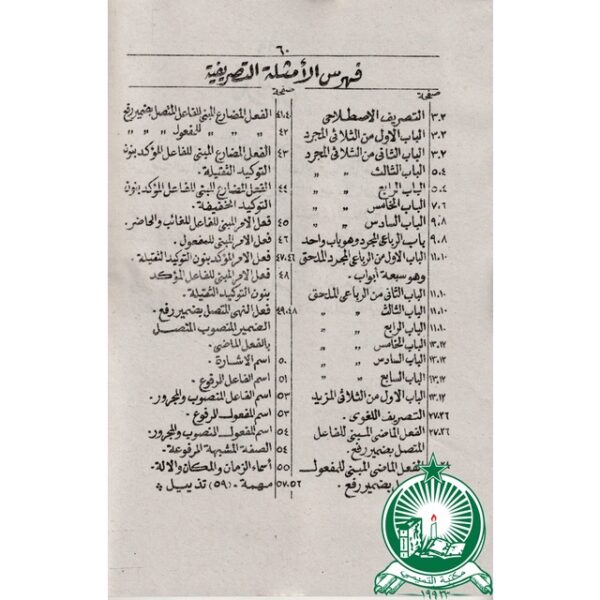 ٦٠
فهرس الأمثلة التصريفية
صحيفة
٣،٢ التصريف الاصطلاحى
٣،٢ الباب الاول من الثلاثى المجرد
٣،٢ الباب الثانى من الثلاثى المجرد
٥،٤ الباب الثالث " "
٥،٤ الباب الرابع " "
٧،٦ الباب الخامس " "
٩،٨ الباب السادس " "
٩،٨ باب الرباعى المجرد وهو باب واحد
١١،١٠ الباب الاول من الرباعى المجرد الملحق
وهو سبعة أبواب.
١١،١٠ الباب الثانى من الرباعى الملحق
١١،١٠ الباب الثالث " "
١١،١٠ الباب الرابع " "
١٣،١٢ الباب الخامس " "
١٣،١٢ الباب السادس " "
١٣،١٢ الباب السابع " "
١٣،١٢ الباب الاول من الثلاثى المزيد
٢٧،٢٦ التصريف اللغوى.
٢٧،٢٦ الفعل الماضى المبنى للفاعل
المتصل بضمير رفع.
الفعل الماضى المبنى للمفعول
بضمير رفع.
صحيفة
٤١،٤٠ الفعل المضارع المبنى للفاعل المتصل بضمير رفع
٤٢ " " " للمفعول " " "
٤٣ الفعل المضارع المبنى للفاعل المؤكد بنون
التوكيد الثقيلة.
٤٤ الفعل المضارع المبنى للفاعل المؤكد بنون
التوكيد الخفيفة.
٤٥ فعل الامر المبنى للفاعل للغائب والحاضر.
٤٦ فعل الامر المبنى للمفعول.
٤٧،٤٦ فعل الامر المؤكد بنون التوكيد الثقيلة.
٤٨ فعل الامر المبنى للفاعل المؤكد
بنون التوكيد الثقيلة.
٤٩،٤٨ فعل النهى المتصل بضمير رفع.
الضمير المنصوب المتصل
بالفعل الماضى.
٥٠ اسم الاشارة.
٥١ اسم الفاعل المرفوع.
٥٣ اسم الفاعل المنصوب والمجرور.
٥٣ اسم المفعول المرفوع.
٥٤ اسم المفعول المنصوب والمجرور.
٥٤ الصفة المشبهة المرفوعة.
٥٥ أسماء الزمان والمكان والآلة.
٥٧،٥٦ مهمة. (٥٩) تذييل
مكتبة التميمي
١٩٩٢٣